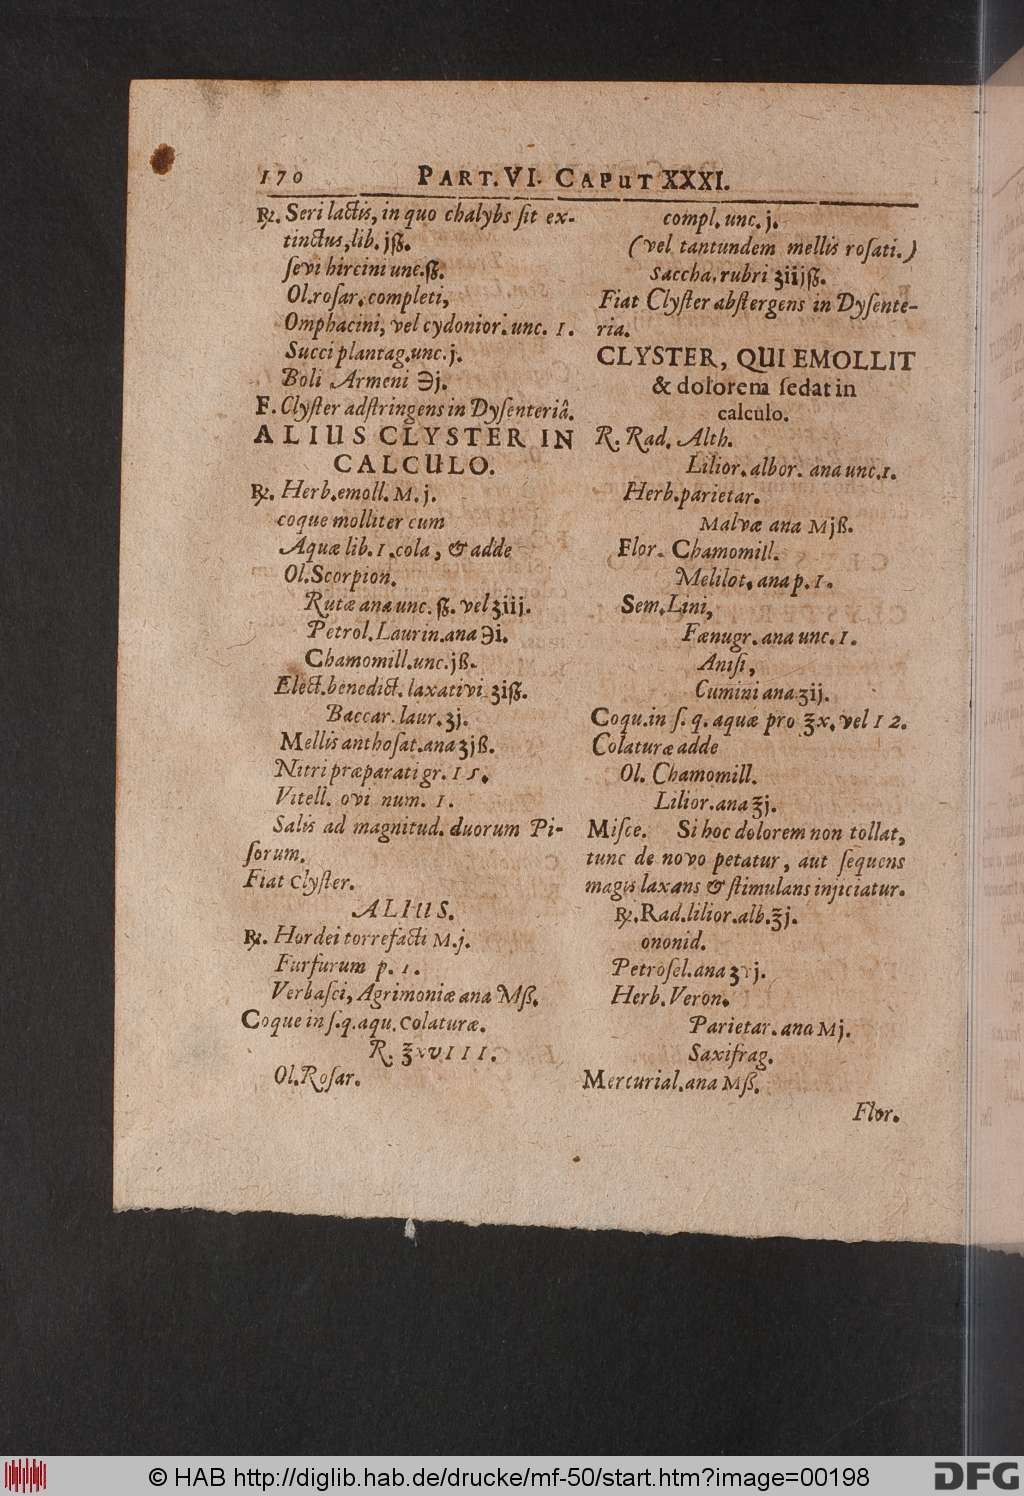 170 PART. VI. CAPUT XXXI.
℞. Seri lactis, in quo chalybs ſit ex-
tinctus, lib. jſẞ.
ſevi hircini unc. ſẞ.
Ol. roſar. completi,
Omphacini, vel cydonior. unc. 1.
Succi plantag. unc. j.
Boli Armeni ℈j.
F. Clyſter adſtringens in Dyſenteriâ.
ALIUS CLYSTER IN
CALCULO.
℞. Herb. emoll. M. j.
coque molliter cum
Aquæ lib. 1. cola, & adde
Ol. Scorpion.
Rutæ ana unc. ß. vel ʒiij.
Petrol. Laurin. ana ℈i.
Chamomill. unc. jß.
Elect. benedict. laxativi ʒiß.
Baccar. laur. ʒj.
Mellis anthoſat. ana ʒjß.
Nitri præparati gr. 15.
Vitell. ovi num. 1.
Salis ad magnitud. duorum Pi-
ſorum.
Fiat Clyſter.
ALIUS.
℞. Hordei torrefacti M. j.
Furfurum p. 1.
Verbaſci, Agrimoniæ ana Mß.
Coque in ſ. q. aqu. Colaturæ.
R. ℥xvIII.
Ol. Roſar.
compl. unc. j.
(vel tantundem mellis roſati.)
Saccha. rubri ʒiijß.
Fiat Clyſter abſtergens in Dyſente-
ria.
CLYSTER, QUI EMOLLIT
& dolorem ſedat in
calculo.
R. Rad. Alth.
Lilior. albor. ana unc. 1.
Herb. parietar.
Malvæ ana Mjß.
Flor. Chamomill.
Melilot. ana p. 1.
Sem. Lini,
Fænugr. ana unc. 1.
Aniſi,
Cumini ana ʒij.
Coqu. in ſ. q. aquæ pro ℥x. vel 12.
Colaturæ adde
Ol. Chamomill.
Lilior. ana ℥j.
Miſce. Si hoc dolorem non tollat,
tunc de novo petatur, aut ſequens
magis laxans & ſtimulans injiciatur.
℞. Rad. lilior. alb. ℥j.
ononid.
Petroſel. ana ʒvj.
Herb. Veron.
Parietar. ana Mj.
Saxifrag.
Mercurial. ana Mß.
Flor.
© HAB http://diglib.hab.de/drucke/mf-50/start.htm?image=00198
DFG